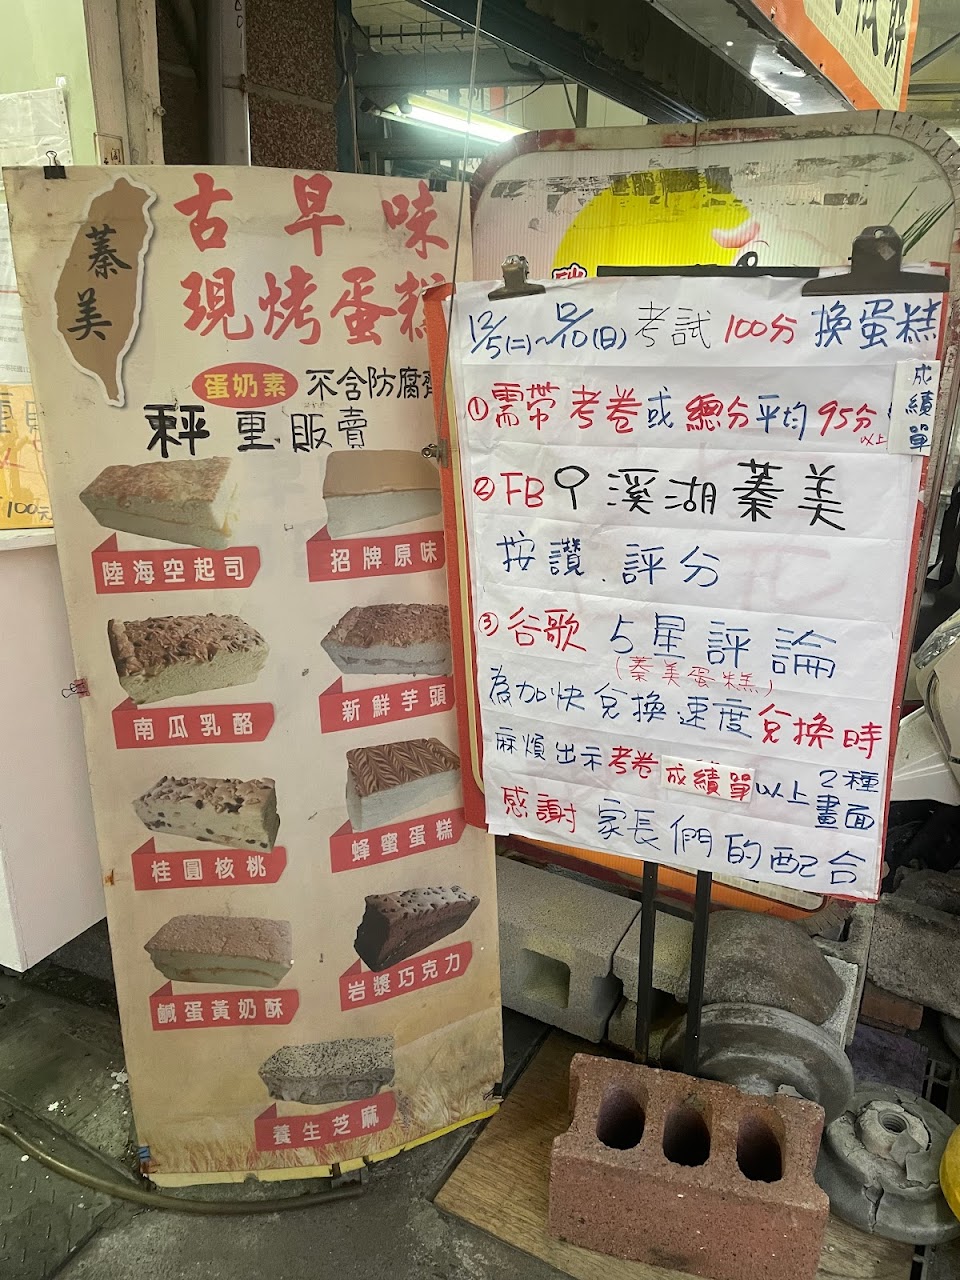 蓁美
古早味
現烤蛋糕
蛋奶素 不含防腐
秤重販賣
陸海空起司
招牌原味
南瓜乳酪
新鮮芋頭
桂圓核桃
蜂蜜蛋糕
鹹蛋黃奶酥
岩漿巧克力
養生芝麻
12/5(二)~12/10(日) 考試100分 換蛋糕
①需帶考卷或總分平均95分以上
成績單
②FB 溪湖蓁美
按讚.評分
③谷歌 5星評論
(蓁美蛋糕)
為加快兌換速度兌換時
麻煩出示考卷成績單以上2種畫面
感謝 家長們的配合
100元